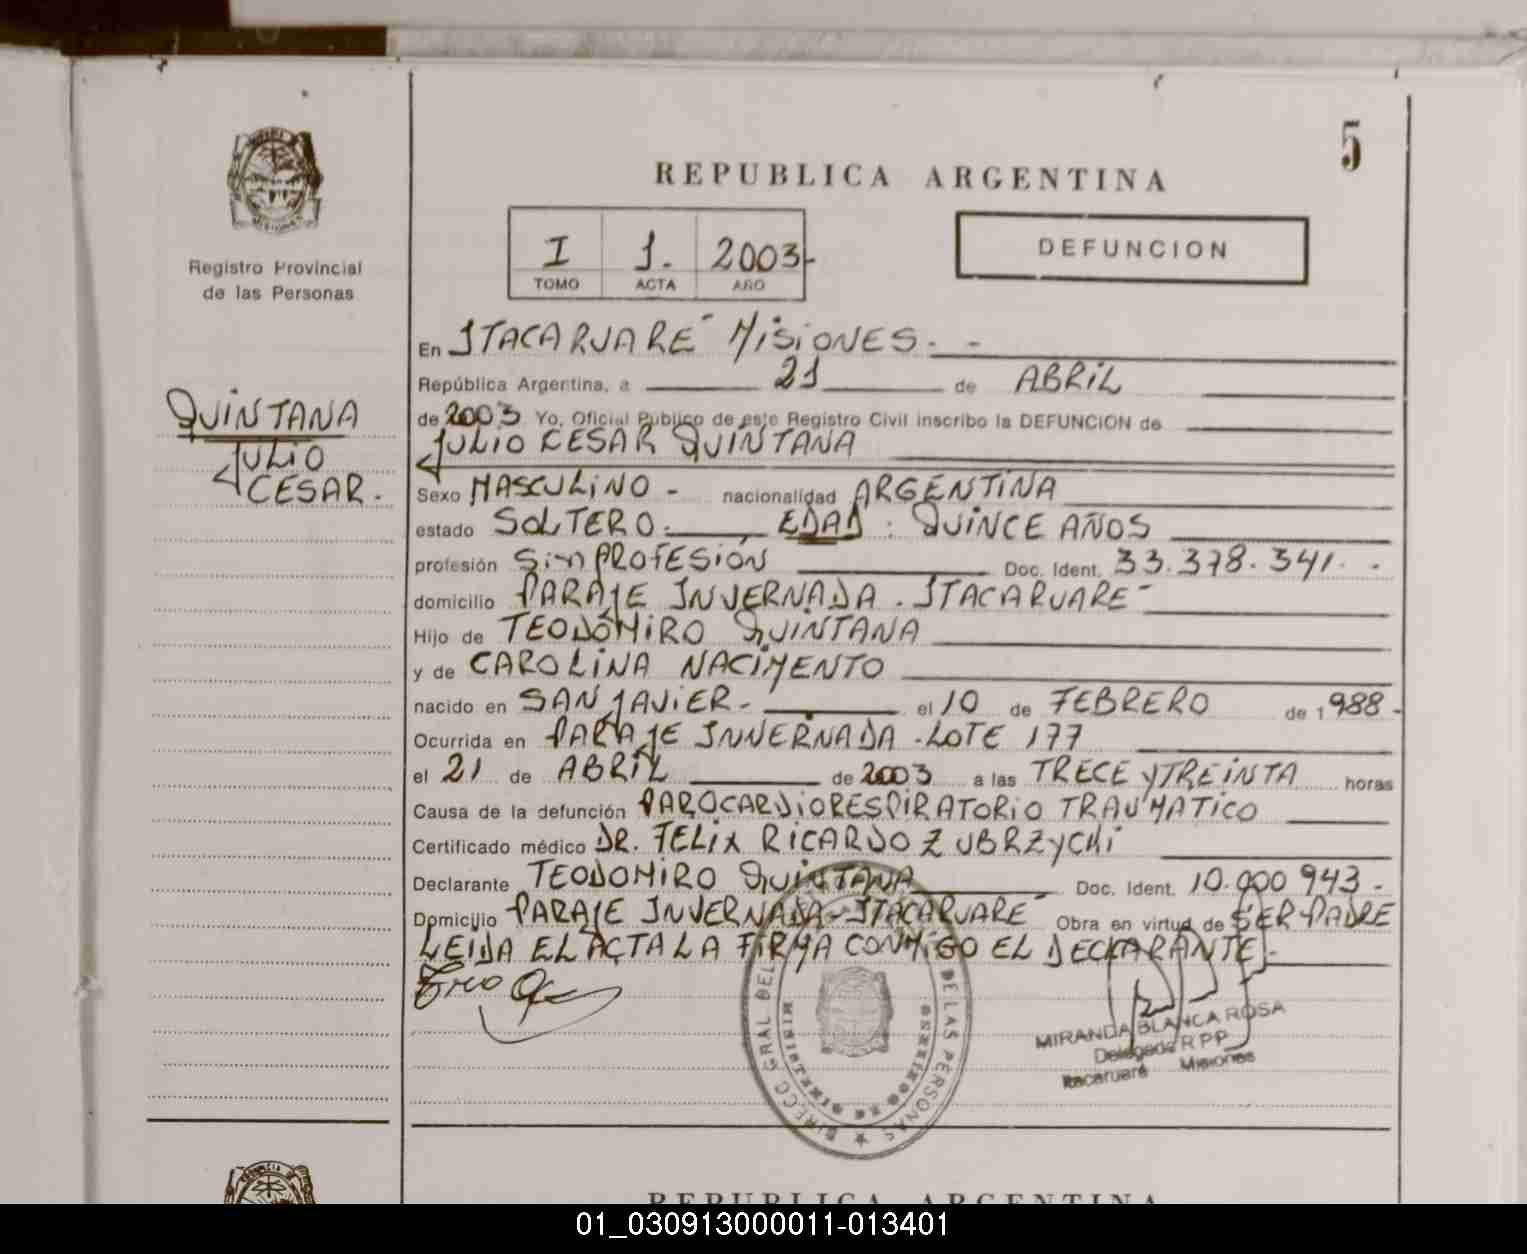 5
REPUBLICA ARGENTINA
I 1. 2003-
TOMO ACTA AÑO
DEFUNCION
Registro Provincial
de las Personas
QUINTANA
JULIO
CESAR.
En ITACARUARE MISIONES. -
República Argentina, a 21 de ABRIL
de 2003 Yo, Oficial Publico de este Registro Civil inscribo la DEFUNCION de
JULIO CESAR QUINTANA
Sexo MASCULINO - nacionalidad ARGENTINA
estado SOLTERO. EDAD: QUINCE AÑOS
profesión Sin PROFESIÓN Doc. Ident. 33.378.341. -
domicilio PARAJE INVERNADA. ITACARUARE
Hijo de TEODOMIRO QUINTANA
y de CAROLINA NACIMENTO
nacido en SAN JAVIER - el 10 de FEBRERO de 1988-
Ocurrida en PARAJE INVERNADA - LOTE 177
el 21 de ABRIL de 2003 a las TRECE Y TREINTA horas
Causa de la defunción PAROCARDIORESPIRATORIO TRAUMATICO
Certificado médico DR. FELIX RICARDO ZUBRZYCKI
Declarante TEODOMIRO QUINTANA Doc. Ident. 10.000 943-
Domicilio PARAJE INVERNADA - ITACARUARE Obra en virtud de SER PADRE
LEIDA EL ACTA LA FIRMA CONMIGO EL DECLARANTE-
DIRECC GRAL DEL DE LAS PERSONAS
MIRANDA BLANCA ROSA
Delegada R P P
Itacaruaré Misiones
REPUBLICA ARGENTINA
01_030913000011-013401